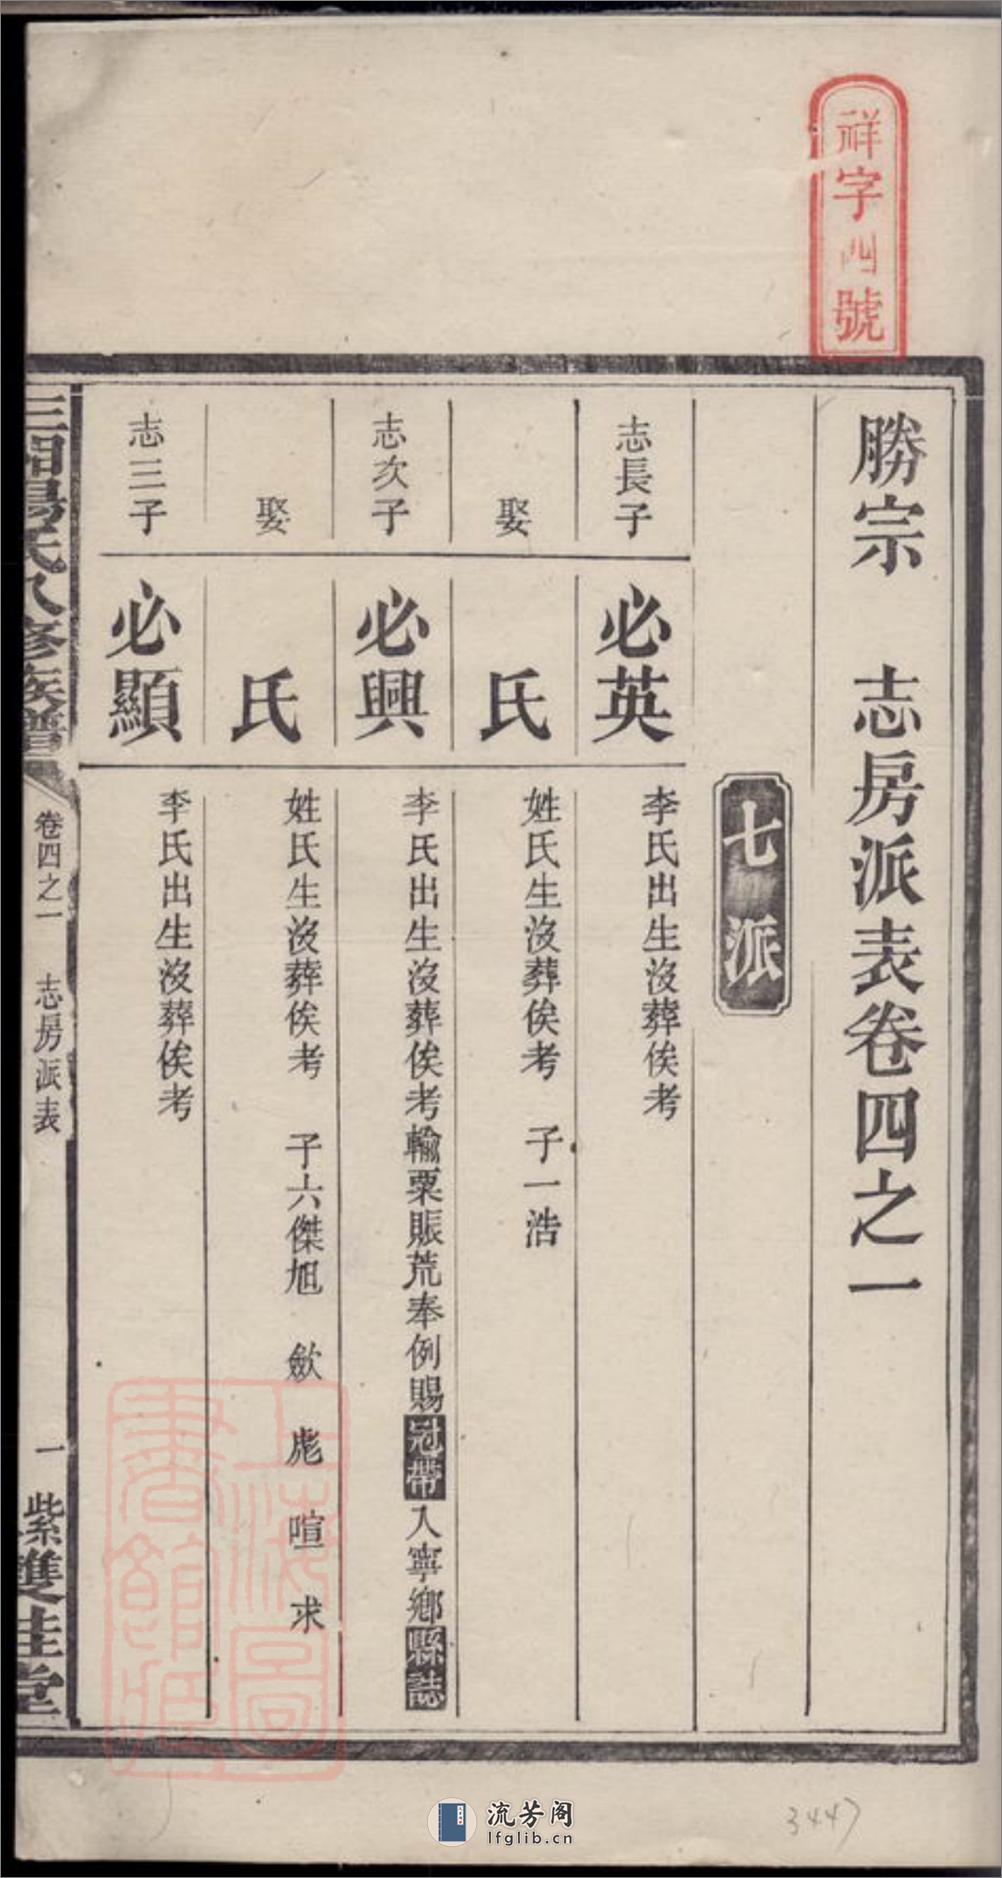 祥字四號
勝宗 志房派表卷四之一
七派
志長子
必英
李氏出生沒葬俟考
娶
氏
姓氏生沒葬俟考 子一浩
志次子
必興
李氏出生沒葬俟考輸粟賑荒奉例賜冠帶入寧鄉縣誌
娶
氏
姓氏生沒葬俟考 子六傑旭 歛 彪 喧 求
志三子
必顯
李氏出生沒葬俟考
氏八修族譜
卷四之一 志房派表
一
紫雙桂堂
上海圖書館藏
流芳阁
lfglib.cn
3447